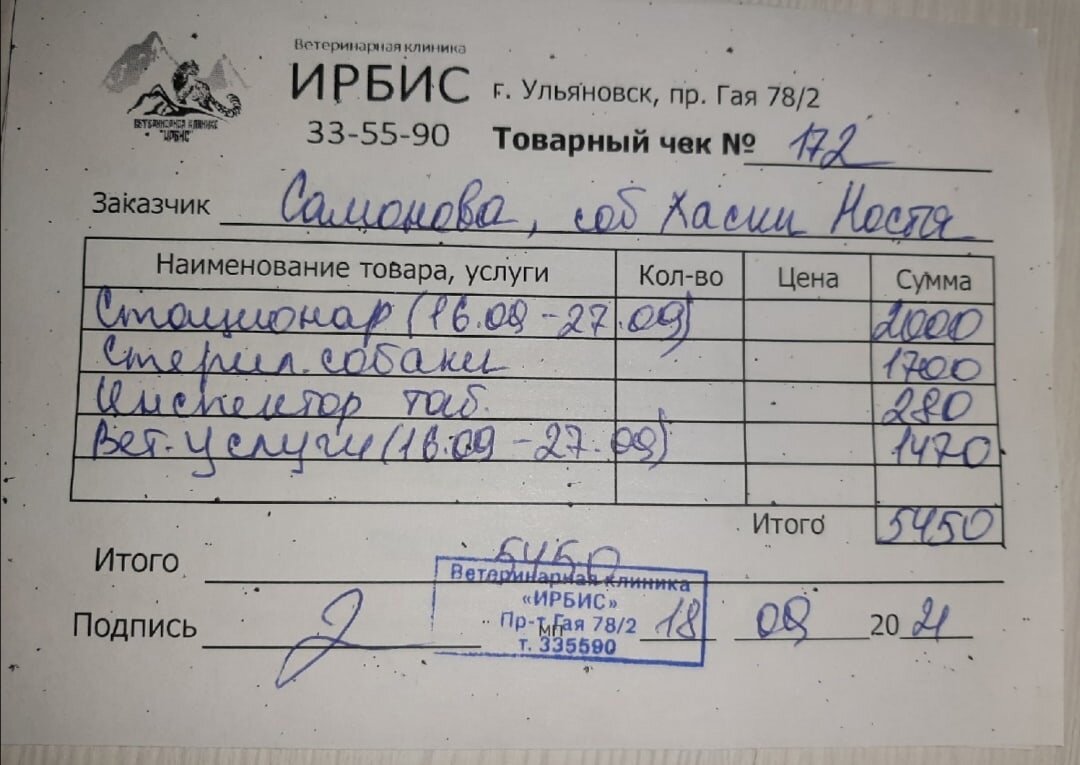 Ветеринарная клиника
ИРБИС г. Ульяновск, пр. Гая 78/2
ВЕТЕРИНАРНАЯ КЛИНИКА
"ИРБИС"
33-55-90 Товарный чек № 172
Заказчик Самонова, соб Хаски Ностя
Наименование товара, услуги Кол-во Цена Сумма
Стационар (16.09 - 27.09) 2000
Стерил. собаки 1700
Инспектор таб. 280
Вет. услуги (16.09 - 27.09) 1470
Итого 5450
Итого 5450
Ветеринарная клиника
«ИРБИС»
Пр-т Гая 78/2
т. 335590
Подпись МП 18 09 20 21